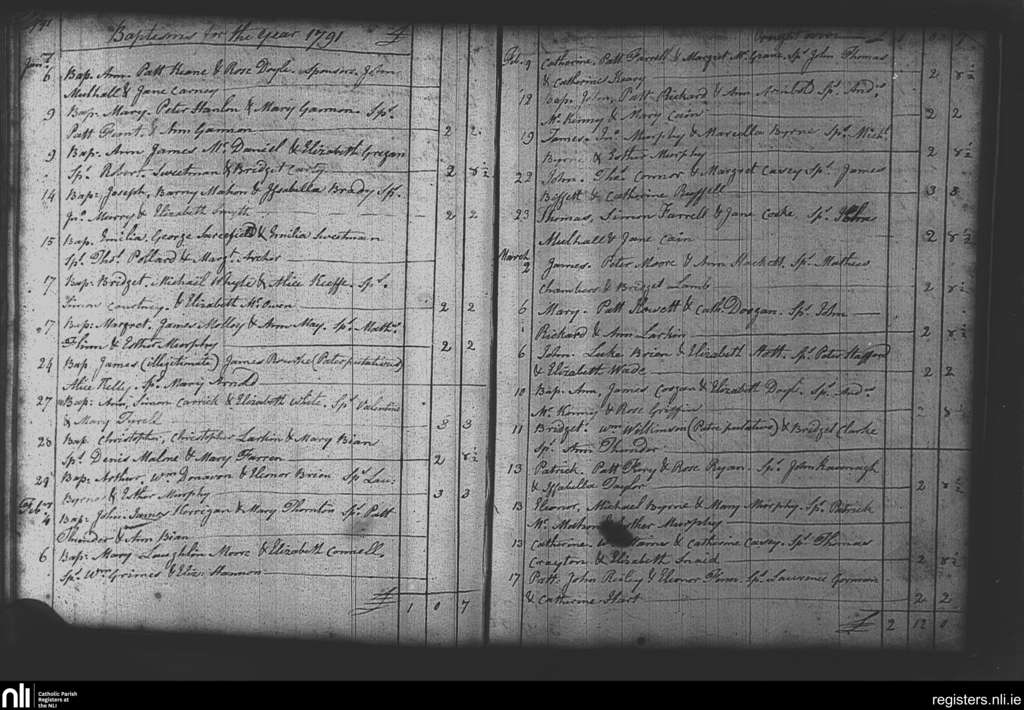 Baptisms for the Year 1791
Jan.y 6 Bap. Ann. Patt Keane & Rose Doyle. Sponsors. John
Mulhall & Jane Carney
9 Bap. Mary. Peter Hanlon & Mary Gannon. Sp.s
Patt & Ann Gannon 2 2
9 Bap: Ann James Mc Daniel & Elizabeth
Sp.s Robert Sweetman & Bridget 2 8½
14 Bap: Joseph, Barny Mahon & Issabella Brady Sp.s
Jn.o Merry & Elizabeth Smyth 2 2
15 Bap. Emilia, George & Emilia Sweetman
Sp.s Tho.s Pollard & Marg.t Archer
17 Bap: Bridget, Michael Whyte & Alice Keeffe. Sp.s
Simon Courtney. & Elizabeth Mc Owen 2 2
17 Bap: Margret, James Molloy & Ann May. Sp.s
Flinn & Esther Murphy 2 2
24 Bap James (illigitimate) James (Pater putativus)
Alice Kelly. Sp.s Mary
27 Bap: Ann, Simon Carrick & Elizabeth White. Sp.s Valentine
& Mary 3 3
28 Bap. Christopher, Christopher Larkin & Mary Bian
Sp.s Denis Malone & Mary Farren 2 8½
29 Bap: Arthur. Wm Donavon & Elenor Brien Sp.s Lau:
Byrne & Esther Murphy 3 3
Feb.y 4 Bap: John. James Horrigan & Mary Thornton Sp.s Patt
Thunder & Ann Bian
6 Bap: Mary Laughlin Moore & Elizabeth Connell.
Sp.s Wm Grimes & Eliz: Hannon
1 0 7
Brought over
Feb. 9 Catherine. Patt Farrell & Margret Mc Grane. Sp.s John Thomas
& Catherine Keary 2 8½
12 Bap: John, Patt Rickard & Ann Sp.s And.w
Mc Kenny & Mary Cain 2 2
19 James. Jn.o Murphy & Marcella Byrne Sp.s Mich.l
Byrne & Esther Murphy 2 8½
22 John. Tho.s Connor & Margret Casey Sp.s James
& Catherine Russell 3 3
23 Thomas, Simon Farrell & Jane Coake. Sp.s
Mulhall & Jane Cain 2 8½
March 2 James. Peter Moore & Ann Hackett. Sp.s Mathew
Chambers & Bridget Lamb 2 8½
6 Mary. Patt & Cath. Doogan. Sp.s John
Rickard & Ann Larkin 2 8½
6 John. Luke Brian & Elizabeth Sp.s Peter Stafford
& Elizabeth Wade 2 2
10 Bap. Ann, James & Elizabeth Doyle Sp.s And.w
Mc Kenny & Rose Griffin
11 Bridget. Wm Wilkinson (Patre putativo) & Bridget Clarke
Sp.s Ann Thunder
13 Patrick. Patt & Rose Ryan. Sp.s John Kavanagh
& Issabella Taylor 2 8½
13 Elenor, Michael Byrne & Mary Murphy. Sp.s Patrick
Mc Mahon & Esther Murphy
13 Catherine & Catherine Casey. Sp.s Thomas
Crayton & Elizabeth 2 8½
17 Patt. John Reiley & Elenor Sp.s Lawrence Gorman
& Catherine Hart 2 2
2 12 0
nli
Catholic Parish
Registers at
the NLI
registers.nli.ie